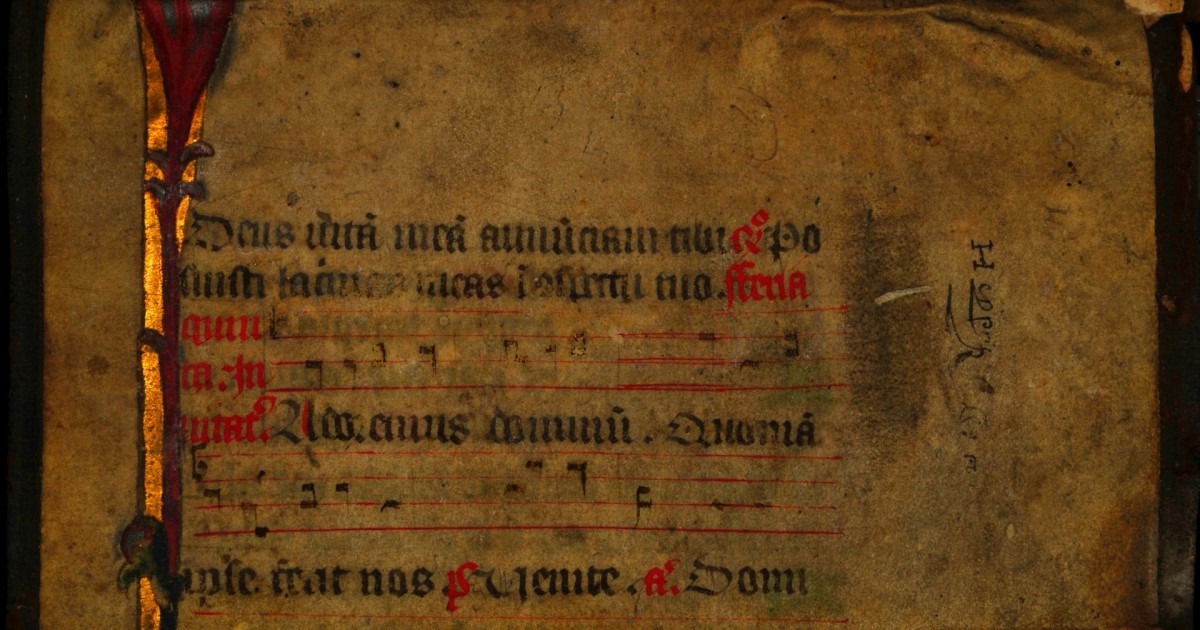 Deus uitā meā annūciaui tibi. Po
suisti lacrimas meas ī ɔspectu tuo. fferia
quin
ta. In
uitat. Adoremus dominū. Quoniā
ipse fecit nos ps Uenite. a. Domi